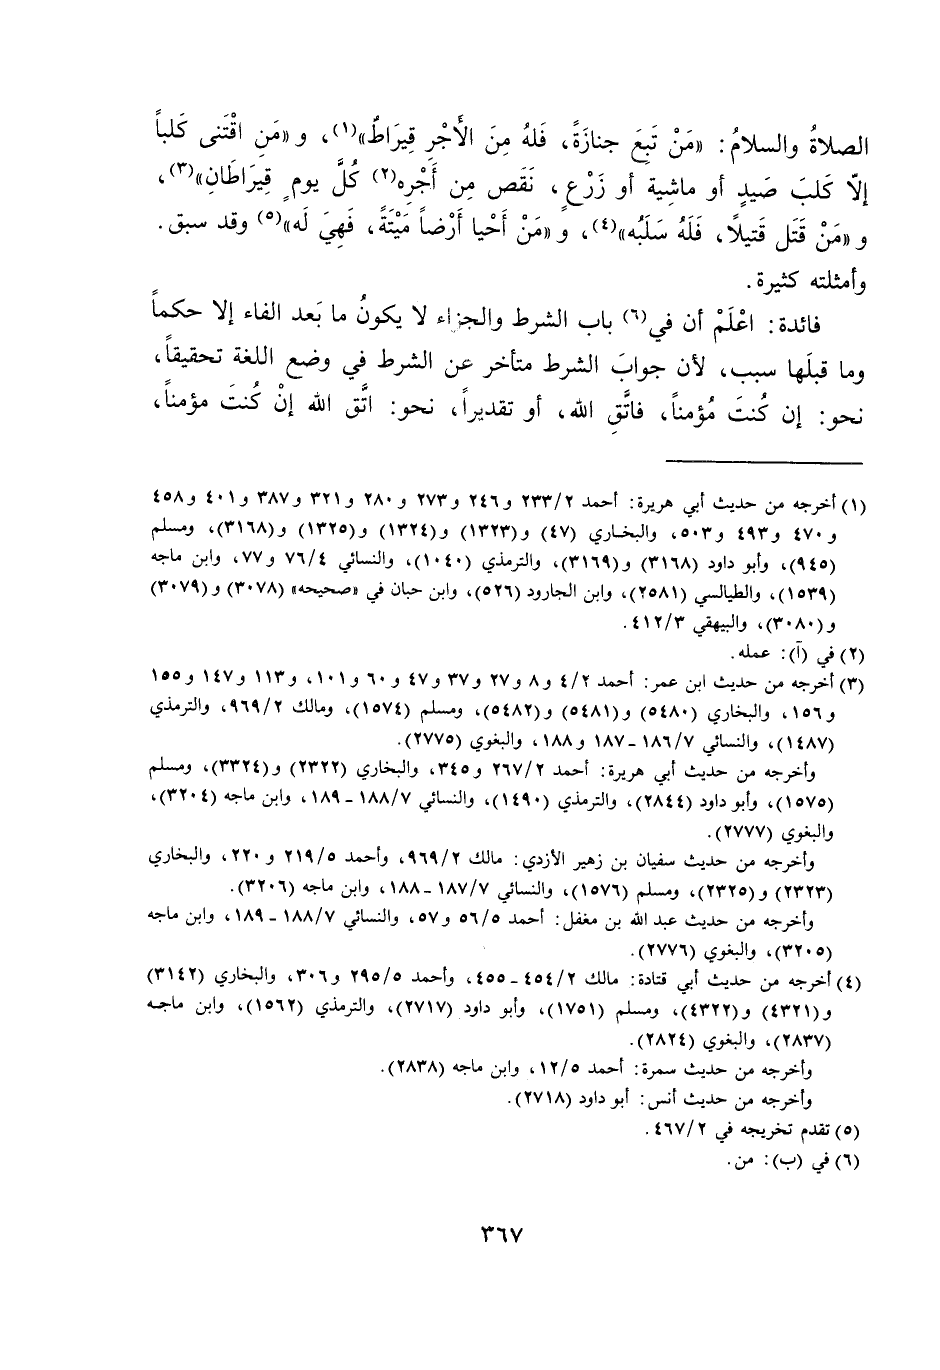 الصلاةُ والسلامُ: «مَنْ تَبِعَ جنازَةً، فَلهُ مِنَ الأَجْرِ قِيرَاطٌ»(١)، و «مَنِ اقْتَنى كَلباً
إلّا كَلبَ صَيدٍ أو ماشِية أو زَرْعٍ، نَقَص مِن أَجْرِه(٢) كُلَّ يومٍ قِيرَاطَانِ»(٣)،
و «مَنْ قَتَل قَتيلًا، فَلَهُ سَلَبُه»(٤)، و «مَنْ أَحْيا أَرْضاً مَيْتَةً، فَهِيَ لَه»(٥) وقد سبق.
وأمثلته كثيرة.
فائدة: اعْلَمْ أن في(٦) باب الشرط والجزاء لا يكونُ ما بَعد الفاء إلا حكماً
وما قبلَها سبب، لأن جوابَ الشرط متأخر عن الشرط في وضع اللغة تحقيقاً،
نحو: إن كُنتَ مُؤمناً، فاتَّقِ الله، أو تقديراً، نحو: اتَّق الله إنْ كُنتَ مؤمناً،
(١) أخرجه من حديث أبي هريرة: أحمد ٢٣٣/٢ و٢٤٦ و٢٧٣ و٢٨٠ و٣٢١ و٣٨٧ و٤٠١ و٤٥٨
و٤٧٠ و٤٩٣ و٥٠٣، والبخاري (٤٧) و(١٣٢٣) و(١٣٢٤) و(١٣٢٥) و(٣١٦٨)، ومسلم
(٩٤٥)، وأبو داود (٣١٦٨) و(٣١٦٩)، والترمذي (١٠٤٠)، والنسائي ٧٦/٤ و٧٧، وابن ماجه
(١٥٣٩)، والطيالسي (٢٥٨١)، وابن الجارود (٥٢٦)، وابن حبان في «صحيحه» (٣٠٧٨) و(٣٠٧٩)
و(٣٠٨٠)، والبيهقي ٤١٢/٣.
(٢) في (آ): عمله.
(٣) أخرجه من حديث ابن عمر: أحمد ٤/٢ و٨ و٢٧ و٣٧ و٤٧ و٦٠ و١٠١، و١١٣ و١٤٧ و١٥٥
و١٥٦، والبخاري (٥٤٨٠) و(٥٤٨١) و(٥٤٨٢)، ومسلم (١٥٧٤)، ومالك ٩٦٩/٢، والترمذي
(١٤٨٧)، والنسائي ١٨٦/٧ ـ ١٨٧ و١٨٨، والبغوي (٢٧٧٥).
وأخرجه من حديث أبي هريرة: أحمد ٢٦٧/٢ و٣٤٥، والبخاري (٢٣٢٢) و(٣٣٢٤)، ومسلم
(١٥٧٥)، وأبو داود (٢٨٤٤)، والترمذي (١٤٩٠)، والنسائي ١٨٨/٧ ـ ١٨٩، وابن ماجه (٣٢٠٤)،
والبغوي (٢٧٧٧).
وأخرجه من حديث سفيان بن زهير الأزدي: مالك ٩٦٩/٢، وأحمد ٢١٩/٥ و٢٢٠، والبخاري
(٢٣٢٣) و(٢٣٢٥)، ومسلم (١٥٧٦)، والنسائي ١٨٧/٧ ـ ١٨٨، وابن ماجه (٣٢٠٦).
وأخرجه من حديث عبد الله بن مغفل: أحمد ٥٦/٥ و٥٧، والنسائي ١٨٨/٧ ـ ١٨٩، وابن ماجه
(٣٢٠٥)، والبغوي (٢٧٧٦).
(٤) أخرجه من حديث أبي قتادة: مالك ٤٥٤/٢ ـ ٤٥٥، وأحمد ٢٩٥/٥ و٣٠٦، والبخاري (٣١٤٢)
و(٤٣٢١) و(٤٣٢٢)، ومسلم (١٧٥١)، وأبو داود (٢٧١٧)، والترمذي (١٥٦٢)، وابن ماجه
(٢٨٣٧)، والبغوي (٢٨٢٤).
وأخرجه من حديث سمرة: أحمد ١٢/٥، وابن ماجه (٢٨٣٨).
وأخرجه من حديث أنس: أبو داود (٢٧١٨).
(٥) تقدم تخريجه في ٤٦٧/٢.
(٦) في (ب): من.
٣٦٧